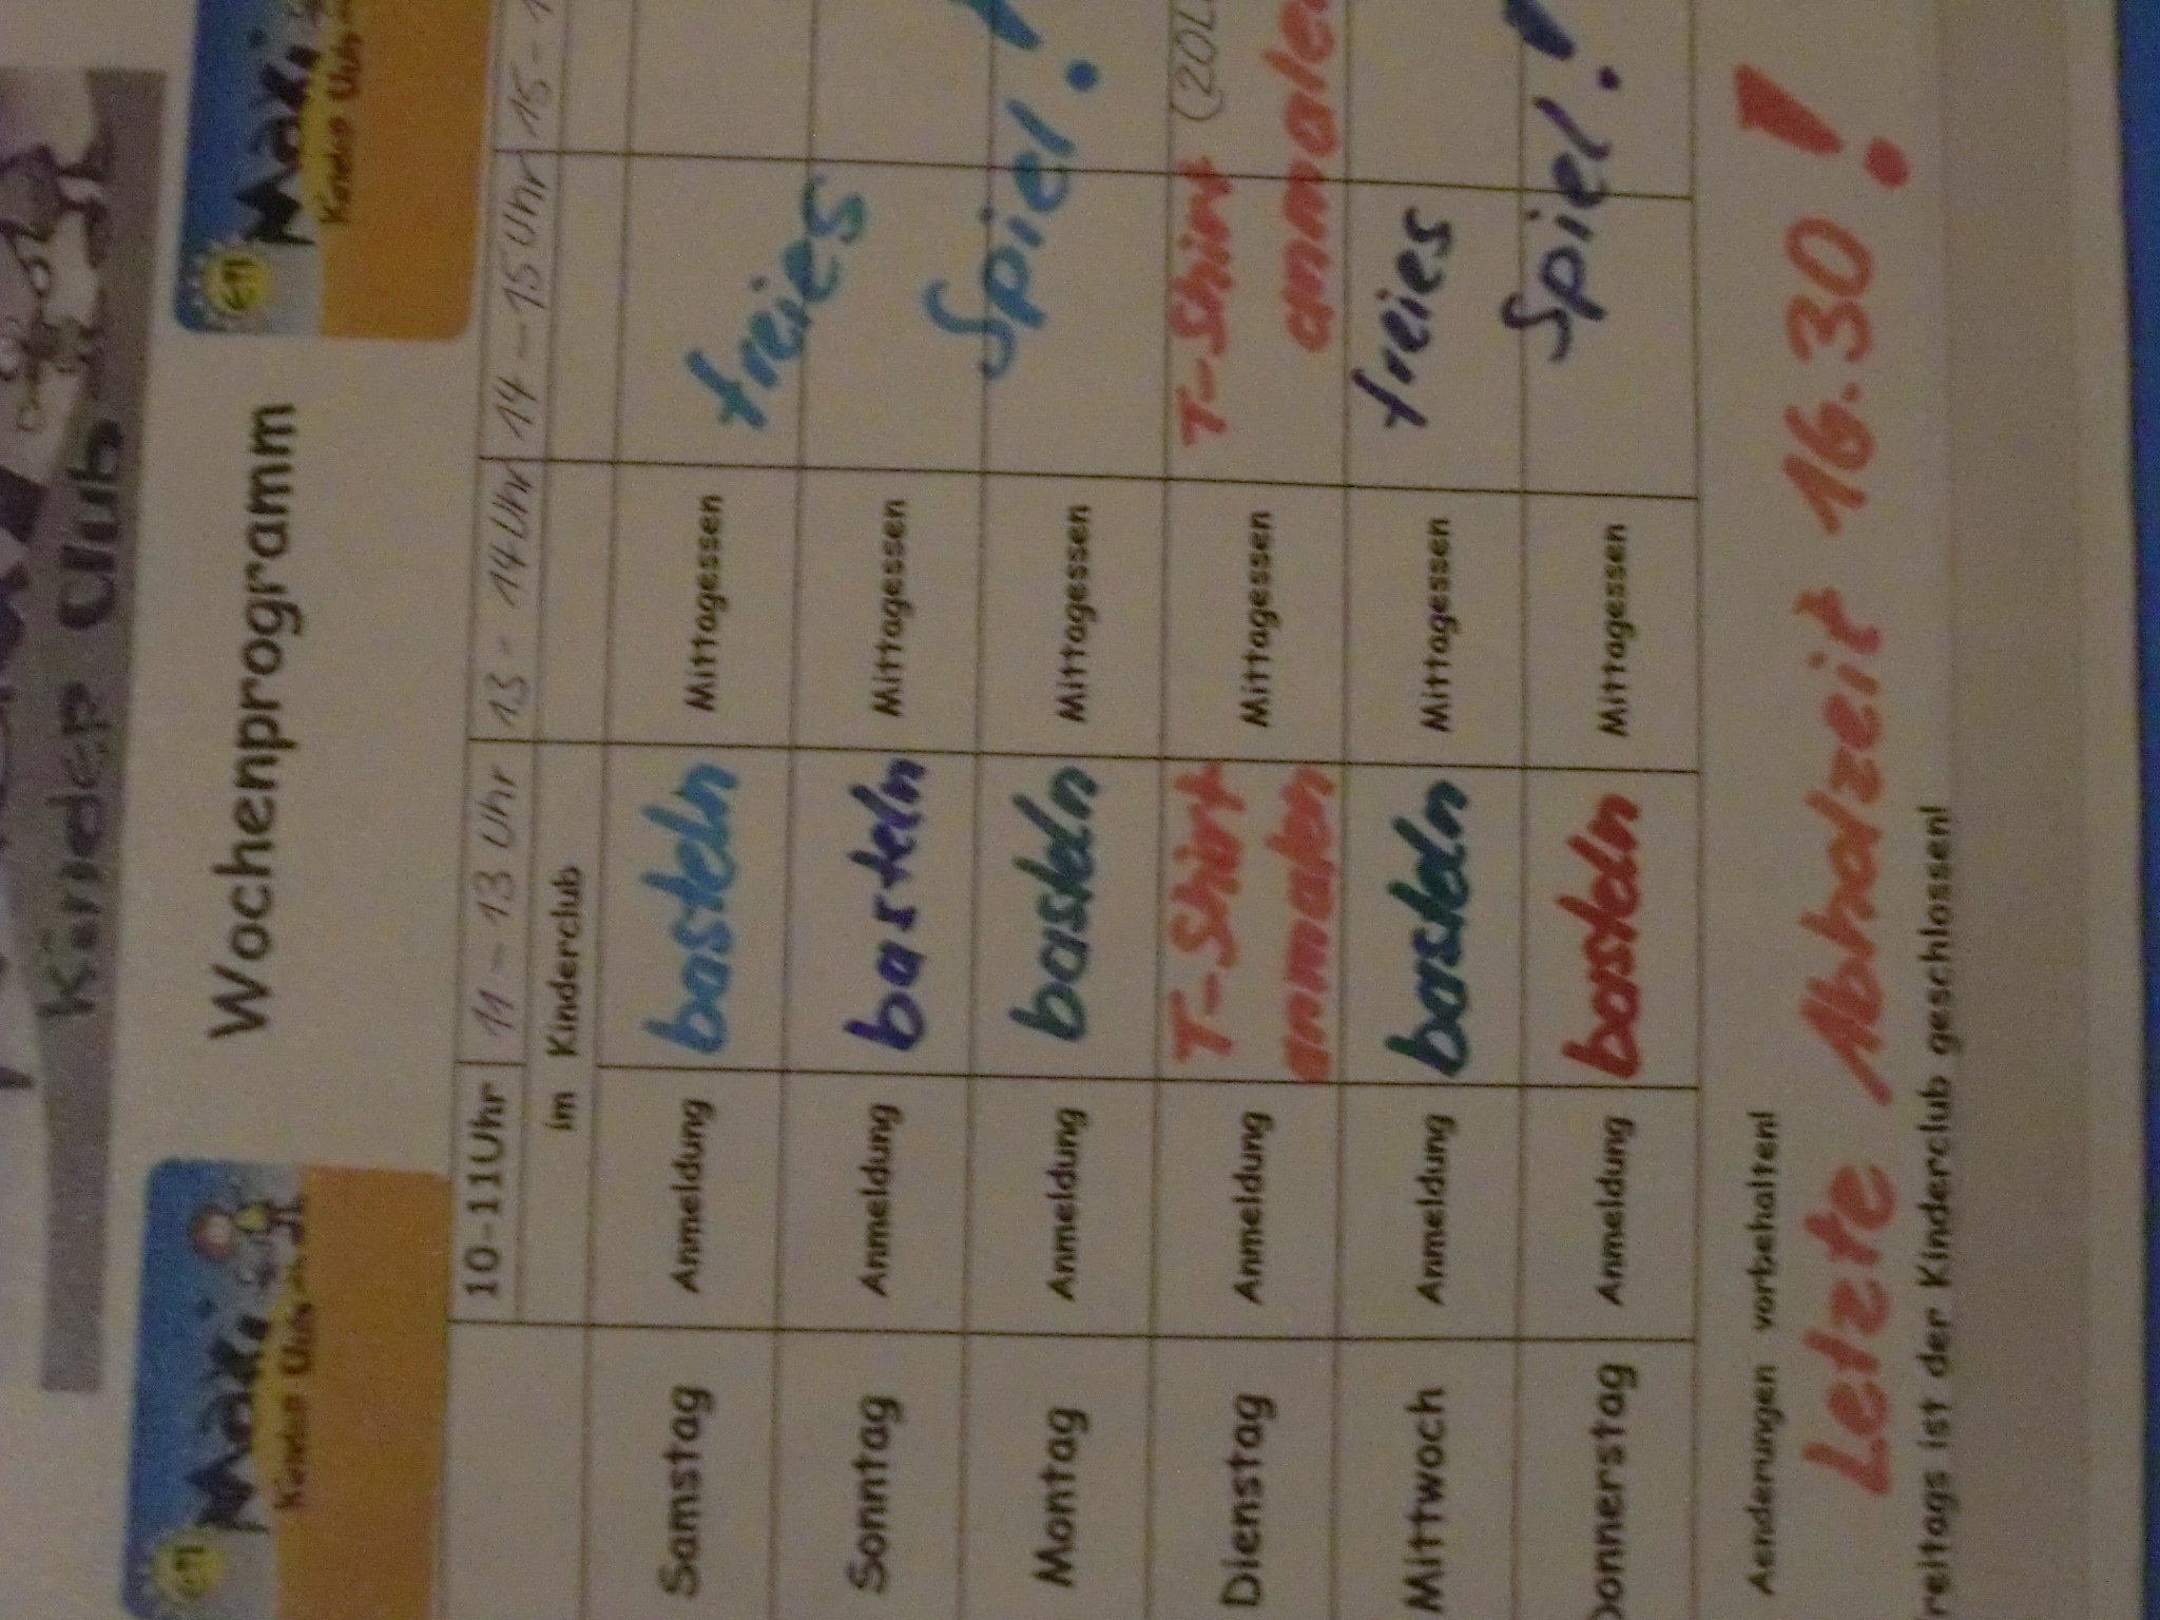 Kinder Club
Wochenprogramm
Maki Maki
Kinder Club Kinder Club
10-11Uhr 11-13 Uhr 13-14Uhr 14-15Uhr 15-
im Kinderclub
Samstag Anmeldung basteln Mittagessen freies
Sonntag Anmeldung basteln Mittagessen
Spiel!
Montag Anmeldung basteln Mittagessen
Dienstag Anmeldung T-Shirt Mittagessen T-Shirt
anmalen anmalen
Mittwoch Anmeldung basteln Mittagessen freies
Donnerstag Anmeldung basteln Mittagessen Spiel!
Aenderungen vorbehalten!
Letzte Abholzeit 16.30!
reitags ist der Kinderclub geschlossen!